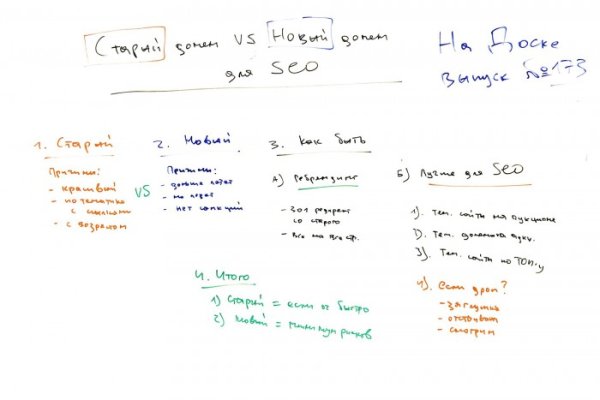 Старый домен VS Новый домен
для SEO
На Доске
выпуск №173
1. Старый
Причины:
- красивый
- по тематике
с ссылками
- с возрастом
VS
2. Новый
Причины:
- дольше
- нет санкций
3. Как быть
А) Ребрендинг
- 301 редирект
со старого
- Все на все стр.
Б) Лучше для SEO
1). Тем. сайты на аукционе
2). Тем. домены аукц.
3). Тем. сайты по ТОП-у
4). если дроп?
- загрузка
- отстаивать
- смотрим
4. Итого
1) Старый = если оч быстро
2) Новый = минимум рисков